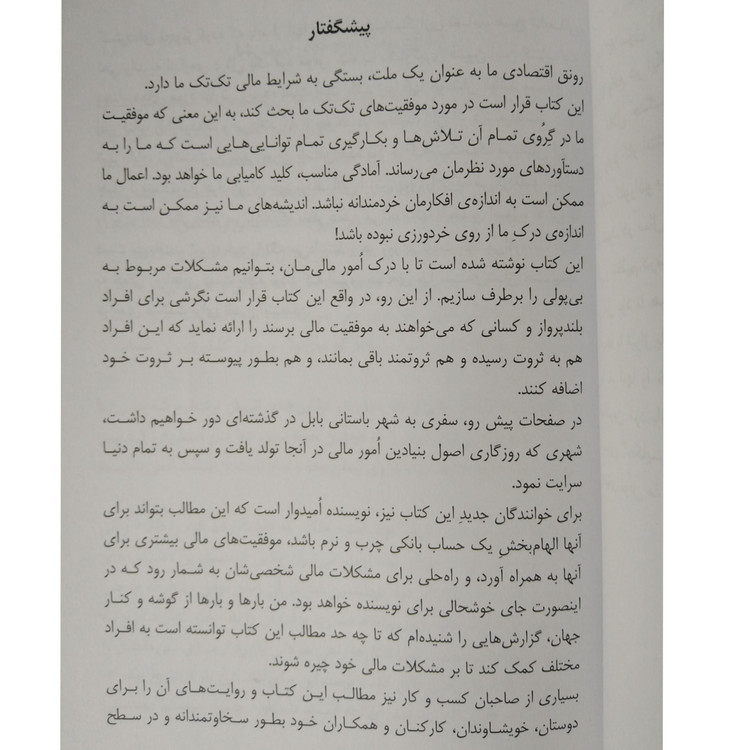 پیشگفتار
رونق اقتصادی ما به عنوان یک ملت، بستگی به شرایط مالی تک‌تک ما دارد.
این کتاب قرار است در مورد موفقیت‌های تک‌تک ما بحث کند، به این معنی که موفقیت
ما در گِرُوی تمام آن تلاش‌ها و بکارگیری تمام توانایی‌هایی است که ما را به
دستآوردهای مورد نظرمان می‌رساند. آمادگی مناسب، کلید کامیابی ما خواهد بود. اعمال ما
ممکن است به اندازه‌ی افکارمان خردمندانه نباشد. اندیشه‌های ما نیز ممکن است به
اندازه‌ی درکِ ما از روی خردورزی نبوده باشد!
این کتاب نوشته شده است تا با درک اُمور مالی‌مان، بتوانیم مشکلات مربوط به
بی‌پولی را برطرف سازیم. از این رو، در واقع این کتاب قرار است نگرشی برای افراد
بلندپرواز و کسانی که می‌خواهند به موفقیت مالی برسند را ارائه نماید که این افراد
هم به ثروت رسیده و هم ثروتمند باقی بمانند، و هم بطور پیوسته بر ثروت خود
اضافه کنند.
در صفحات پیش رو، سفری به شهر باستانی بابل در گذشته‌ای دور خواهیم داشت،
شهری که روزگاری اصول بنیادین اُمور مالی در آنجا تولد یافت و سپس به تمام دنیا
سرایت نمود.
برای خوانندگان جدیدِ این کتاب نیز، نویسنده اُمیدوار است که این مطالب بتواند برای
آنها الهام‌بخشِ یک حساب بانکی چرب و نرم باشد، موفقیت‌های مالی بیشتری برای
آنها به همراه آورد، و راه‌حلی برای مشکلات مالی شخصی‌شان به شمار رود که در
اینصورت جای خوشحالی برای نویسنده خواهد بود. من بارها و بارها از گوشه و کنار
جهان، گزارش‌هایی را شنیده‌ام که تا چه حد مطالب این کتاب توانسته است به افراد
مختلف کمک کند تا بر مشکلات مالی خود چیره شوند.
بسیاری از صاحبان کسب و کار نیز مطالب این کتاب و روایت‌های آن را برای
دوستان، خویشاوندان، کارکنان و همکاران خود بطور سخاوتمندانه و در سطح